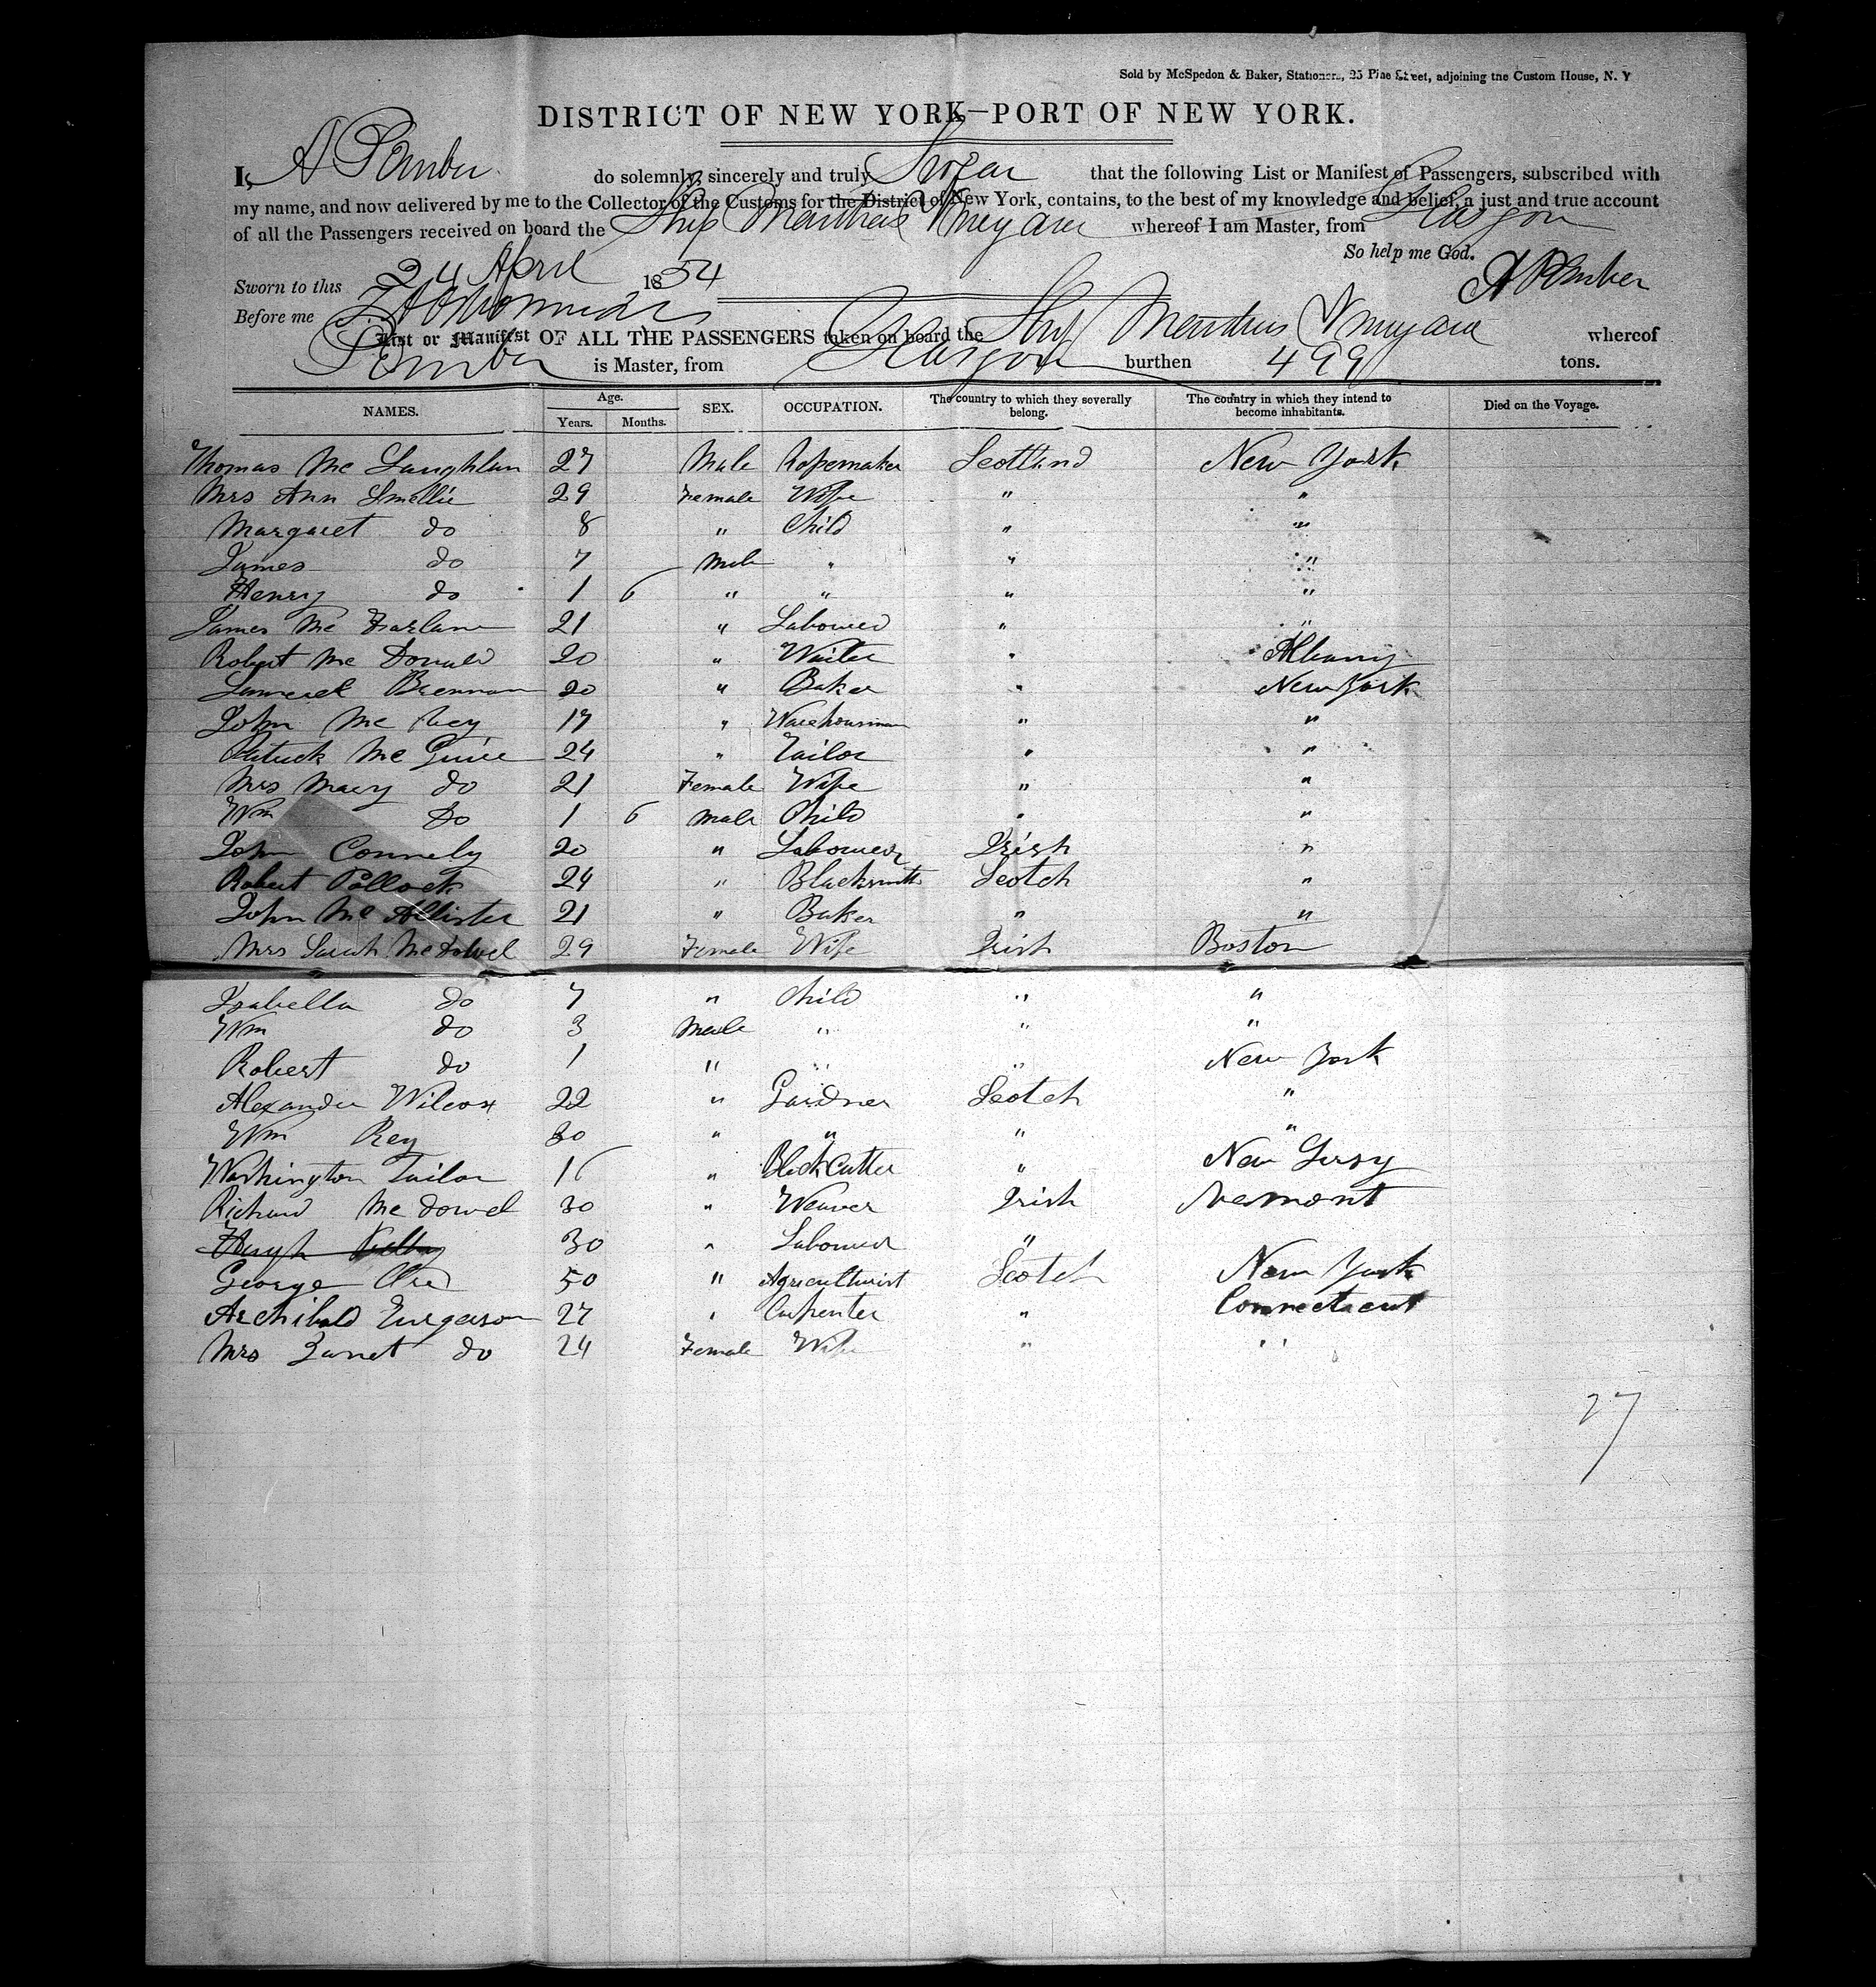 Sold by McSpedon & Baker, Stationers, 25 Pine Street, adjoining the Custom House, N. Y
DISTRICT OF NEW YORK—PORT OF NEW YORK.
I, A do solemnly, sincerely and truly Swear that the following List or Manifest of Passengers, subscribed with
my name, and now delivered by me to the Collector of the Customs for the District of New York, contains, to the best of my knowledge and belief, a just and true account
of all the Passengers received on board the Ship whereof I am Master, from Glasgow
So help me God.
Sworn to this 24 April 1854
Before me
List or Manifest OF ALL THE PASSENGERS taken on board the Ship whereof
is Master, from Glasgow burthen 499 tons.
NAMES. Age. Years. Months. SEX. OCCUPATION. The country to which they severally belong. The country in which they intend to become inhabitants. Died on the Voyage.
Thomas Mc Laughlan 27 Male Ropemaker Scotland New York
Mrs Ann Smellie 29 Female Wife " "
Margaret do 8 " Child " "
James do 7 Male " " "
Henry do 1 6 " " " "
James Mc Farlane 21 " Labourer " "
Robert Mc Donald 20 " Waiter " Albany
Brennan 20 " Baker " New York
John Mc 17 " Warehousman " "
Patrick Mc Guire 24 " Tailor " "
Mrs Mary do 21 Female Wife " "
Wm Do 1 6 Male Child " "
John Connely 20 " Labourer Irish "
Robert Pollock 24 " Blacksmith Scotch "
John Mc Allister 21 " Baker " "
Mrs Sarah Mc Dowel 29 Female Wife Irish Boston
Isabella do 7 " Child " "
Wm do 3 Male " " "
Robert do 1 " " " New York
Alexander Wilcox 22 " Gardner Scotch "
Wm Rey 30 " " " "
Washington Tailor 16 " Block Cutter " New Jersy
Richard Mc Dowel 30 " Weaver Irish Vermont
Hugh 30 " Labourer "
George 50 " Agriculturist Scotch New York
Archibald Furgerson 27 " Carpenter " Connecticut
Mrs Janet do 24 Female Wife " "
27